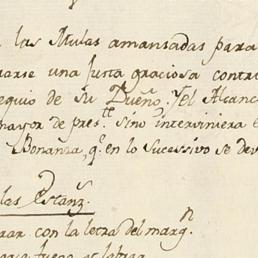 las Mulas amansadas para
una Justa graciosa contri
equio de su Dueño. Yel Alcanc
mayor de pres.te sino interviniera e
Bonanza, q.e en lo sucessivo se de
las Estanz.
rar con la letra del marg.n